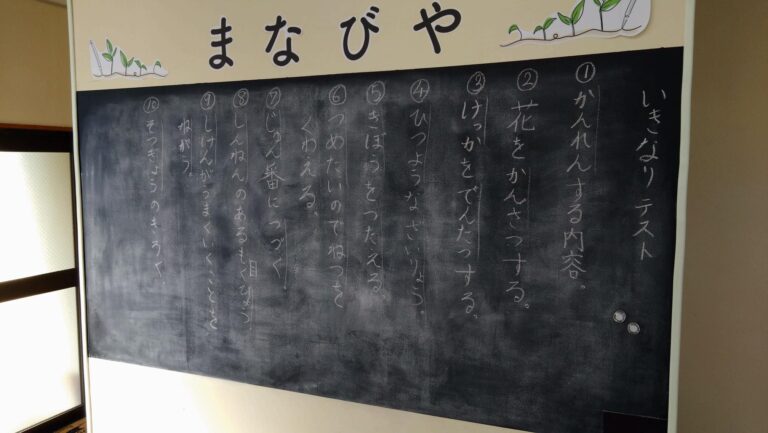 まなびや
いきなりテスト
① かんれんする内容。
② 花をかんさつする。
③ けっかをでんたつする。
④ ひつようなざいりょう。
⑤ きぼうをつたえる。
⑥ つめたいのでねつを
くわえる。
⑦ じゅん番につづく。
⑧ しんねんのある
⑨ しけんがうまくいくことを
ねがう。
⑩ そつぎょうのきろく